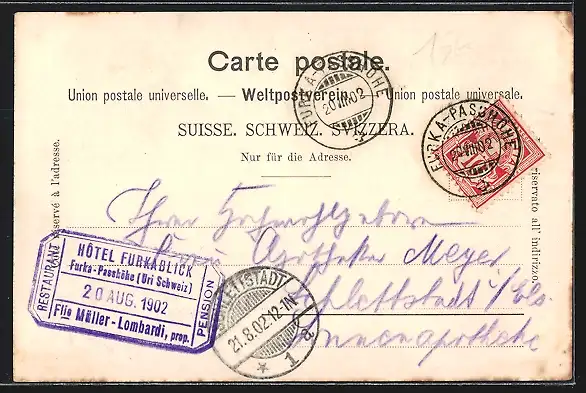 Carte postale.
Union postale universelle. — Weltpostverein. — Unione postale universale.
SUISSE. SCHWEIZ. SVIZZERA.
Nur für die Adresse.
réservé à l'adresse.
riservato all' indirizzo.
FURKA-PASSHÖHE
20.VIII.02
FURKA-PASSHÖHE
20.VIII.02
Ihrer Hochwohlgeboren
Frau Apotheker Meyer
Schlettstadt i/Els.
RESTAURANT
HÔTEL FURKABLICK
Furka-Passhöhe (Uri Schweiz)
20 AUG. 1902
Flle Müller-Lombardi, prop.
PENSION
SCHLETTSTADT
21.8.02.12-1N
* 1 a